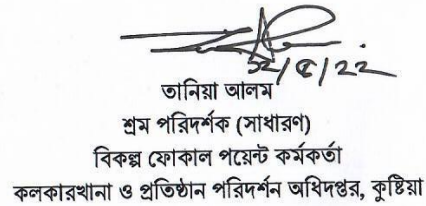 ১২/৫/২২
তানিয়া আলম
শ্রম পরিদর্শক (সাধারণ)
বিকল্প ফোকাল পয়েন্ট কর্মকর্তা
কলকারখানা ও প্রতিষ্ঠান পরিদর্শন অধিদপ্তর, কুষ্টিয়া